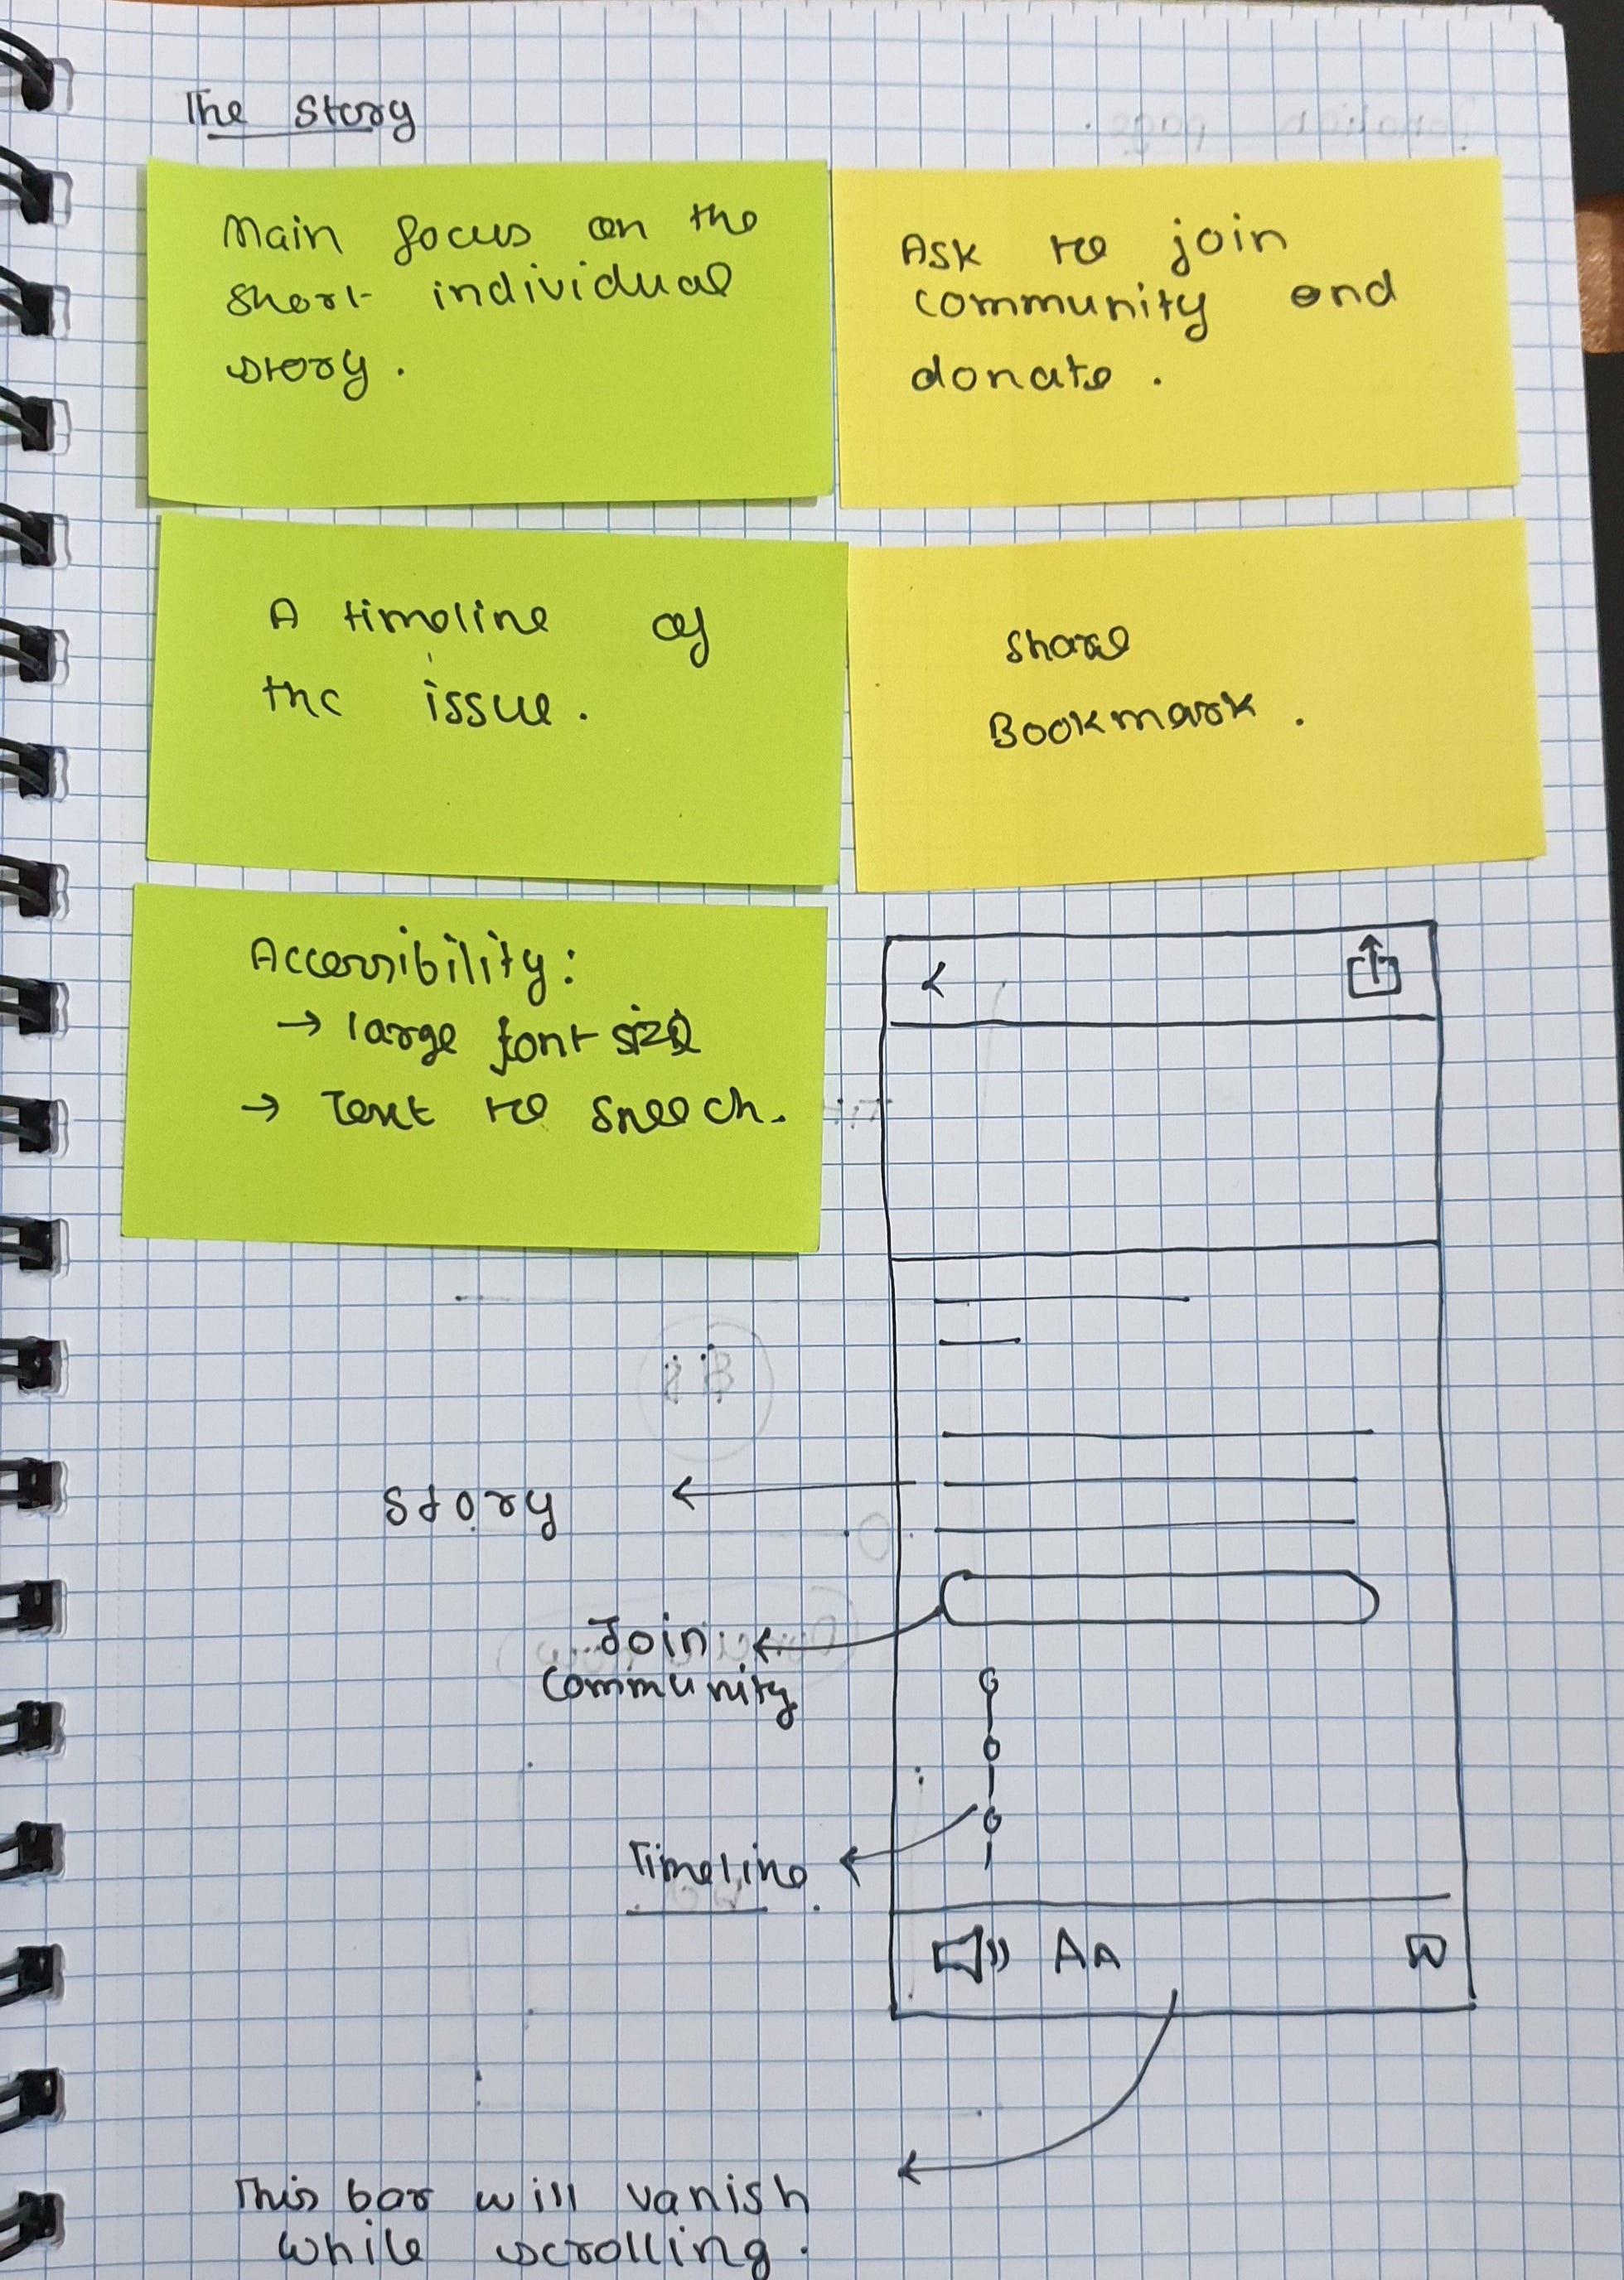 The Story
Main focus on the
short individual
story.
Ask to join
community and
donate.
A timeline of
the issue.
Share
Bookmark.
Accessibility:
→ large font size
→ Text to speech.
Story
Join
community
Timeline.
AA
This bar will vanish
while scrolling.